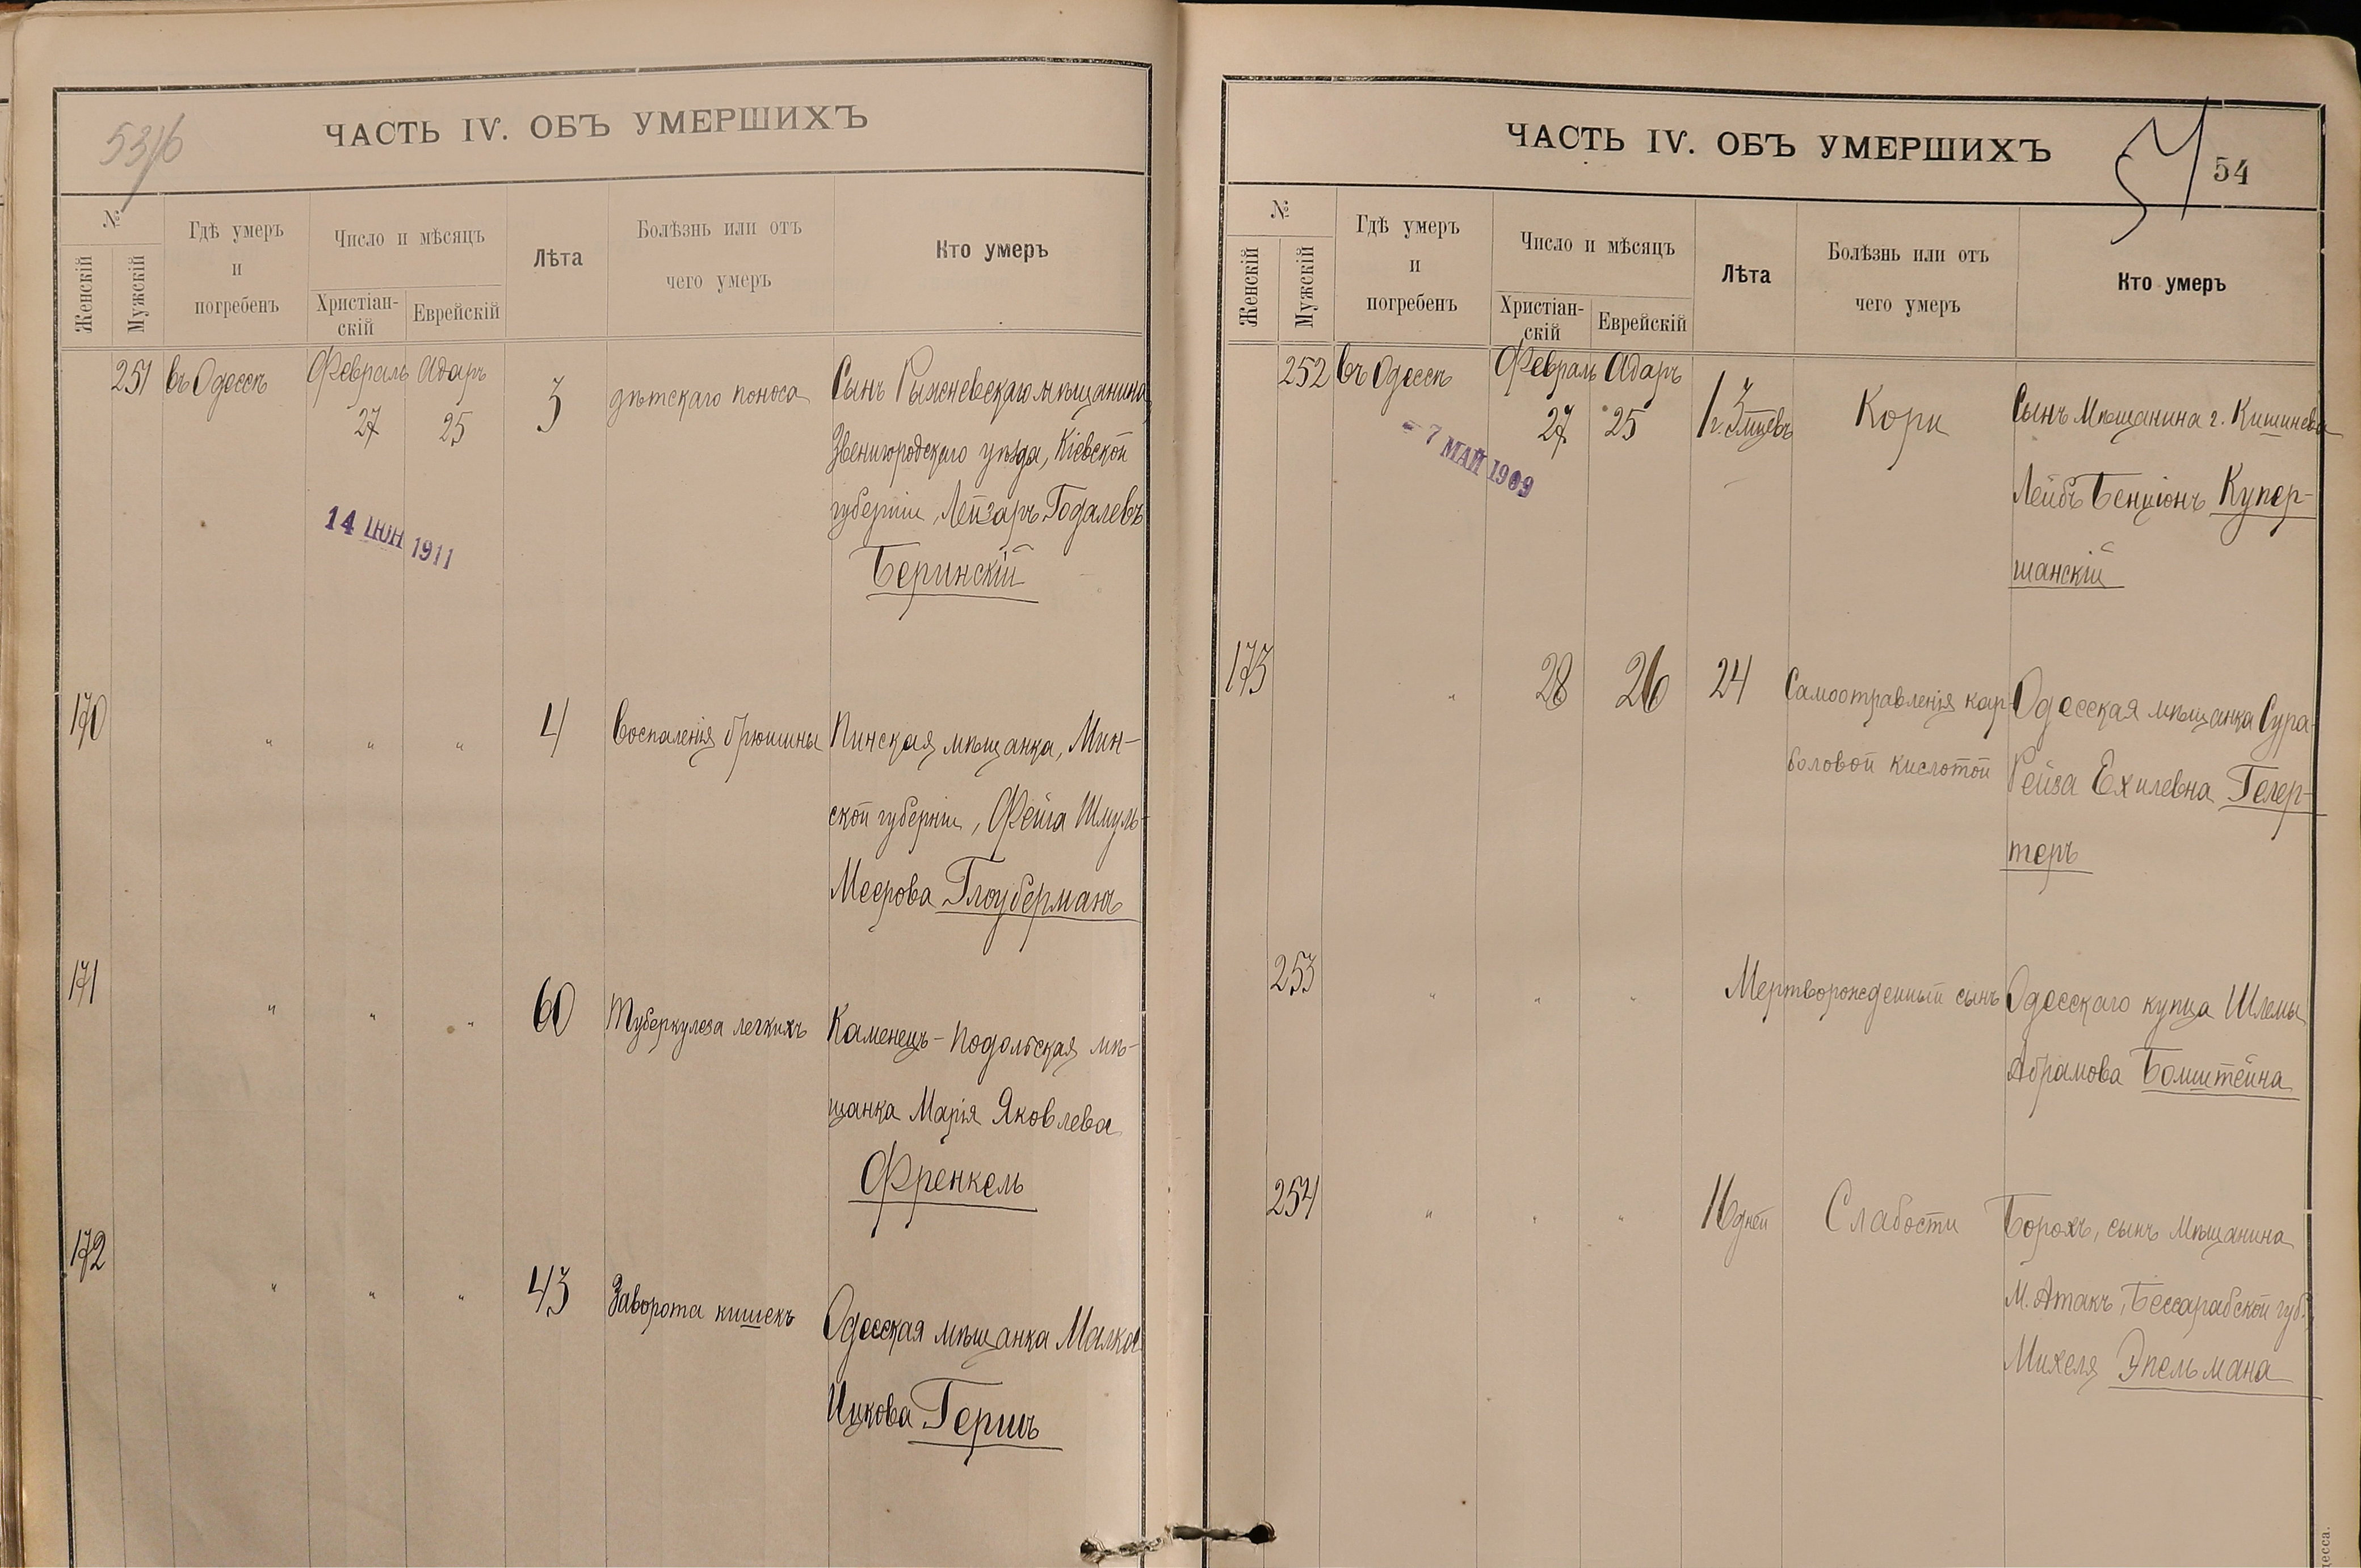 53/б
ЧАСТЬ IV. ОБЪ УМЕРШИХЪ
№
Женскій
Мужскій
Гдѣ умеръ
и
погребенъ
Число и мѣсяцъ
Христіан-
скій
Еврейскій
Лѣта
Болѣзнь или отъ
чего умеръ
Кто умеръ
251 въ Одессѣ Февраль Адаръ
27 25 3 дѣтскаго поноса Сынъ мѣщанина
Звенигородскаго уѣзда, Кіевской
губерніи, Лейзаръ Годалевъ
Беринскій
14 ІЮН 1911
170 " " " 4 Воспаленія брюшины Пинская мѣщанка, Мин-
ской губерніи, Фейга Шмуль-
Меерова Глоуберманъ
171 " " " 60 Туберкулеза легкихъ Каменецъ-Подольская мѣ-
щанка Марія Яковлева
Френкель
172 " " " 43 Заворота кишекъ Одесская мѣщанка Малка
Ицкова Гершъ
ЧАСТЬ IV. ОБЪ УМЕРШИХЪ
54
54
№
Женскій
Мужскій
Гдѣ умеръ
и
погребенъ
Число и мѣсяцъ
Христіан-
скій
Еврейскій
Лѣта
Болѣзнь или отъ
чего умеръ
Кто умеръ
252 въ Одессѣ Февраль Адаръ
27 25 1 г. 3 мѣсцевъ Кори Сынъ мѣщанина г. Кишинева
Лейбъ Бенціонъ Купер-
шанскій
- 7 МАЙ 1909
173 " 28 26 24 Самоотравленія кар- Одесская мѣщанка Сура-
боловой кислотой Рейза Ехилевна Гелер-
теръ
253 " " " Мертворожденный сынъ Одесскаго купца Шлемы
Абрамова Бомштейна
254 " " " 16 дней Слабости Борохъ, сынъ мѣщанина
М. Атакъ, Бессарабской губ.
Михеля Эпельмана
десса.